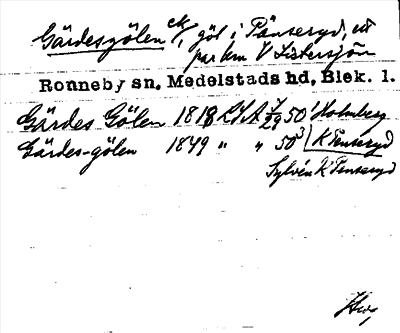 Gärdesgölen ck/, göl i Tänseryd, ett
par km V Listersjön
Ronneby sn, Medelstads hd, Blek. l.
Gärdes Gölen 1818 LSA 50¹ Holmberg
Gärdes-gölen 1849 " " 50³ K Tenseryd
Sylvén K Tenseryd